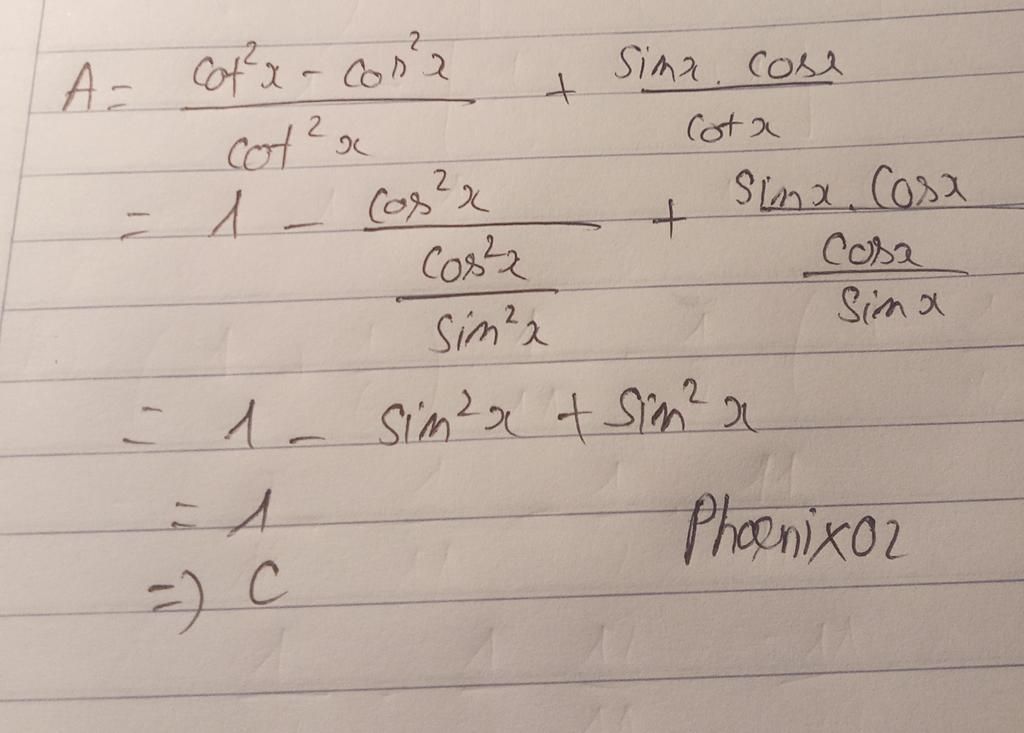 A = (cot²x - cos²x)/(cot²x) + (sinx . cosx)/(cotx)
= 1 - (cos²x)/((cos²x)/(sin²x)) + (sinx . cosx)/((cosx)/(sinx))
= 1 - sin²x + sin²x
= 1
=> C
Phoenix02